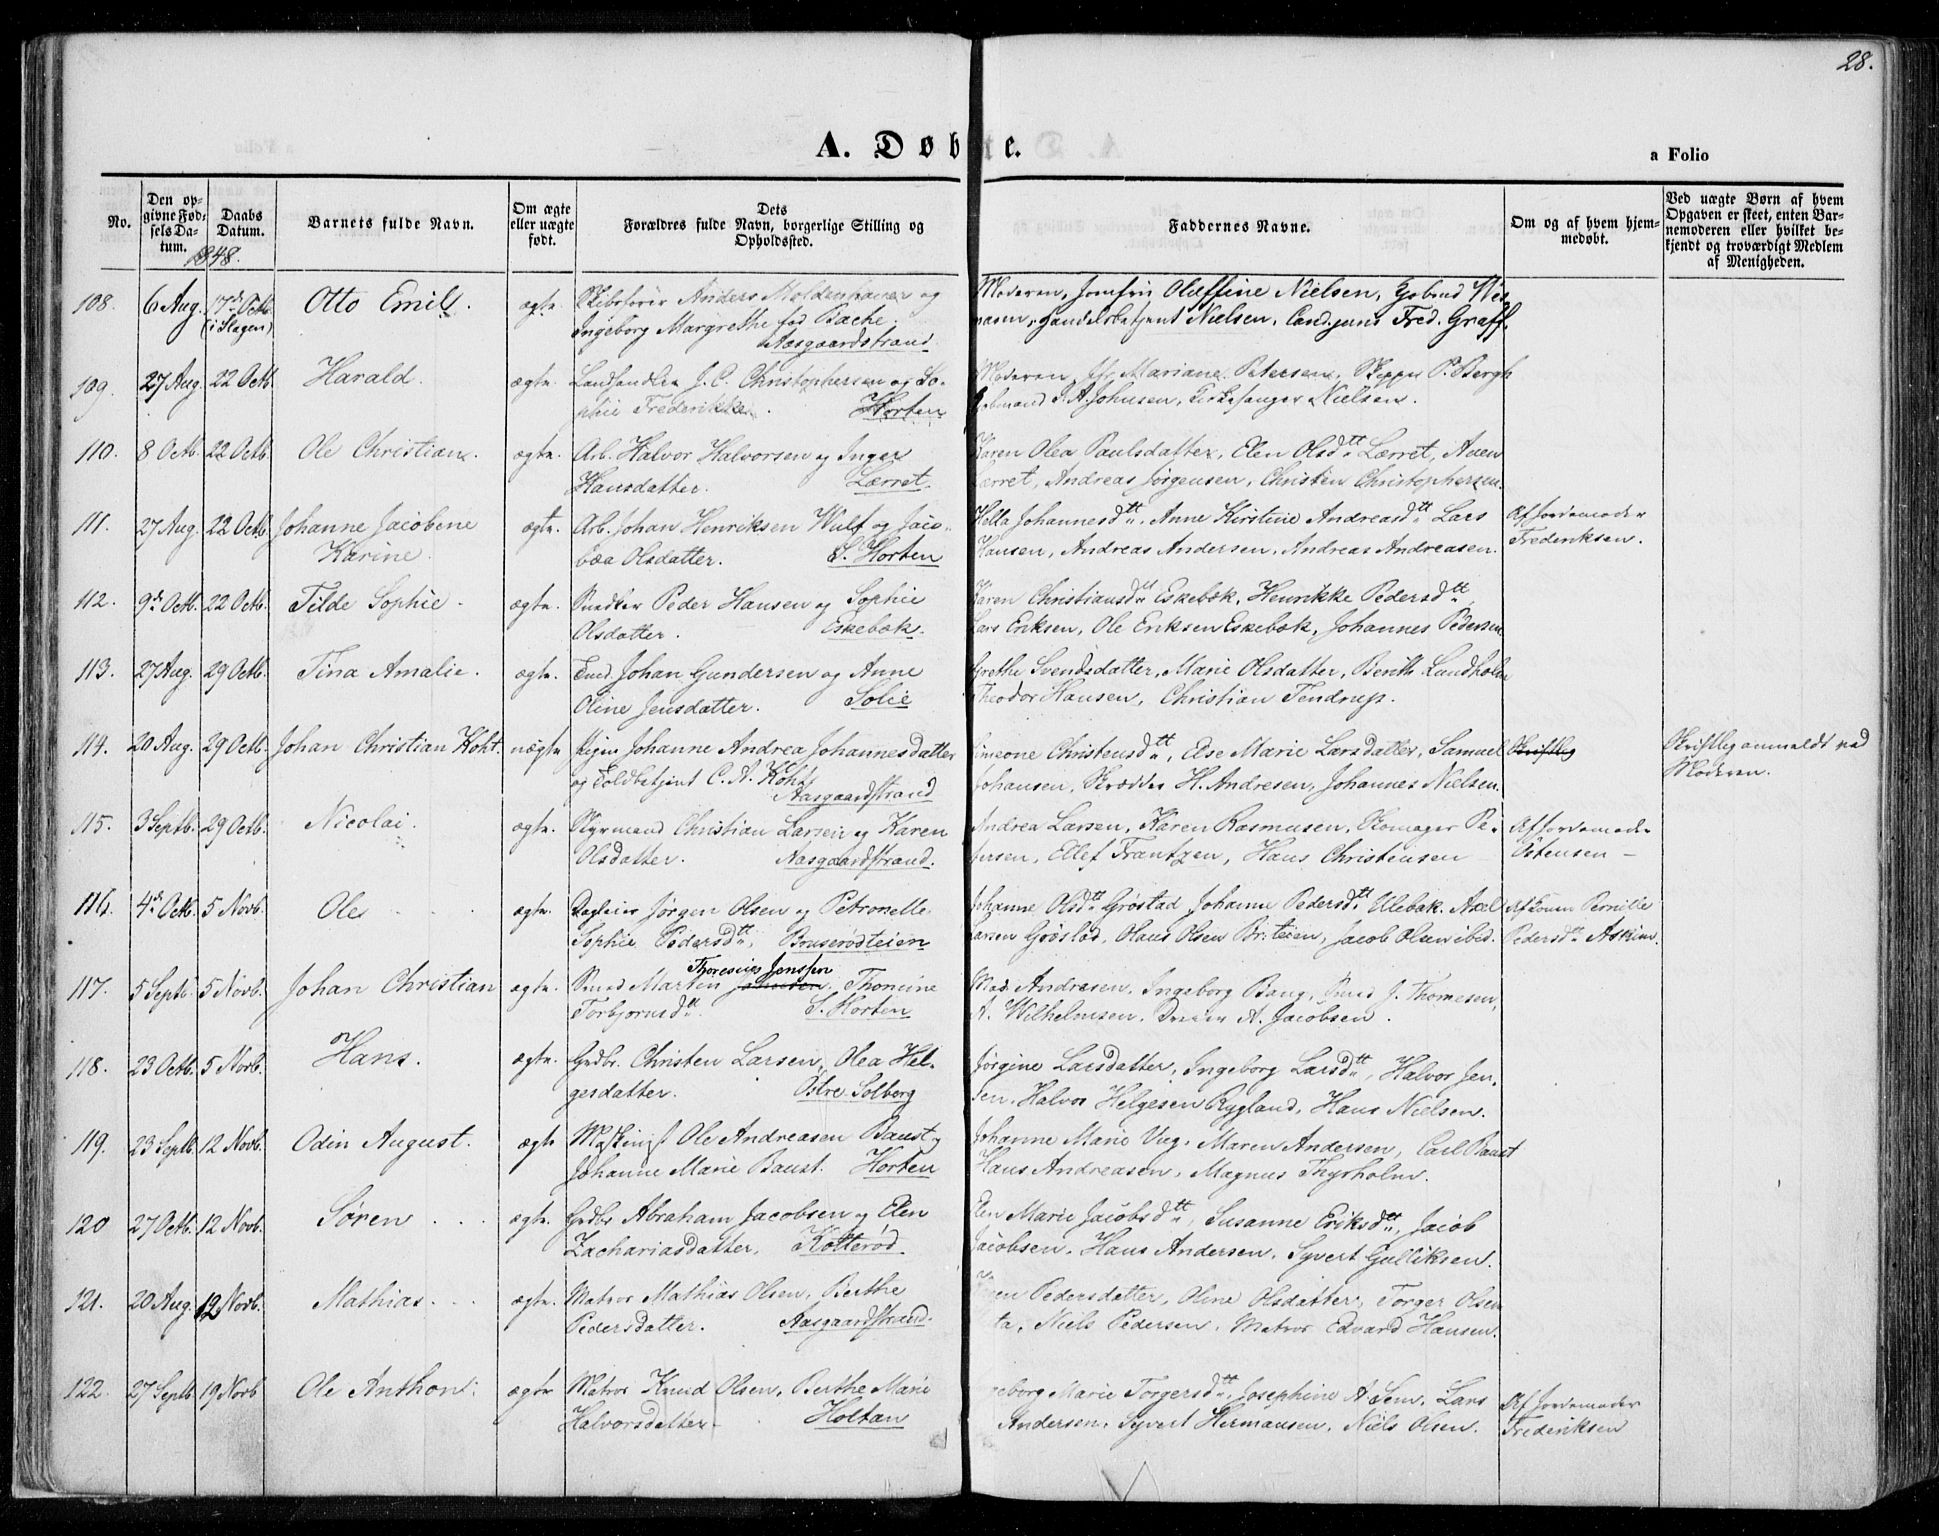 28.
A. Døbte.
a Folio
No.
Den op-
givne Fød-
sels Da-
tum.
Daabs
Datum.
1848.
Barnets fulde Navn.
Om ægte
eller uægte
født.
Dets
Forældres fulde Navn, borgerlige Stilling og
Opholdssted.
Faddernes Navne.
Om og af hvem hjem-
medøbt.
Ved uægte Børn af hvem
Opgaven er skeet, enten Bar-
nemoderen eller hvilket be-
kjendt og troværdigt Medlem
af Menigheden.
108. 6 Aug. 17de Octb. (i Slagen) Otto Emil. ægte. Skibsfører Anders Moldenhauer og
Ingeborg Margrethe fød Bache.
Aasgaardstrand
Moderen, Jomfru Oluffine Nielsen,
Handelsbetjent Nielsen, Cand. juris Fred. Graff.
109. 27 Aug. 22 Octb. Harald. ægte. Landhandler J. C. Christophersen og So-
phie Frederikke. Horten
Moderen, Mariane Petersen, Skipper P. Bergh
J. A. Johnsen, Kirkesanger Nielsen.
110. 8 Octb. 22 Octb. Ole Christian. ægte. Arb. Halvor Halvorsen og Inger
Hansdatter. Lærret.
Karen Olea Paulsdatter, Elen Olsdtr Lærret, Aven
Lærret, Andreas Jørgensen, Christen Christophersen.
111. 27 Aug. 22 Octb. Johanne Jacobene
Karine. ægte. Arb. Johan Henriksen Wulf og Jaco-
bea Olsdatter. S. Horten
Hella Johannesdtr. Anne Kirstine Andreasdtr Lars
Hansen, Andreas Andersen, Andreas Andreasen.
Af Jordemoder
Frederiksen.
112. 9de Octb. 22 Octb. Tilde Sophie. ægte. Snedker Peder Hansen og Sophie
Olsdatter. Eskebæk.
Karen Christiansdtr Eskebæk, Henrikke Pedersdtr
Lars Eriksen, Ole Eriksen Eskebæk, Johannes Pedersen.
113. 27 Aug. 29 Octb. Tina Amalie. ægte. Johan Gundersen og Anne
Oline Jensdatter. Solie
Grethe Svendsdatter, Marie Olsdatter, Berith Lundholm
Theodor Hansen, Christian Tendrup.
114. 20 Aug. 29 Octb. Johan Christian Koht. uægte. Pigen Johanne Andrea Johannesdatter
og Toldbetjent C. A. Koht
Aasgaardstrand
Simeone Christensdtr, Else Marie Larsdatter, Samuel
Johansen, Skrædder H. Andresen, Johannes Nielsen.
Skriftlig
Skriftlig anmeldt ved
Moderen.
115. 3 Septb. 29 Octb. Nicolai. ægte. Styrmand Christian Larsen og Karen
Olsdatter. Aasgaardstrand.
Andrea Larsen, Karen Rasmusen, Skomager Pe-
tersen, Ellef Frantzen, Hans Christensen
Af Jordemoder
Østensen
116. 4de Octb. 5 Novb. Ole ægte. Dagleier Jørgen Olsen og Petronelle
Sophie Pedersdtr, Bouserødteien
Johanne Olsdtr Grøstad, Johanne Pedersdtr Ullebæk. Axel
Larsen Grøstad, Olaus Olsen Br: teien, Jacob Olsen ibid.
Af Konen Pernille
Pedersdtr Askim.
117. 5 Septb. 5 Novb. Johan Christian ægte. Thoresius Jenssen
Smed Martin Johnsen, Thomine
Torbjørnsdtr. S. Horten
Mad. Andresen, Ingeborg Bang, Smed J. Thomesen,
A. Wilhelmsen. Dreier A. Jacobsen.
118. 23 Octb. 5 Novb. Hans. ægte. Grdbr. Christen Larsen, Olea Hel-
gesdatter. Østre Solberg
Jørgine Larsdatter, Ingeborg Larsdtr, Halvor Jen-
sen, Halvor Helgesen Rygland, Hans Nielsen.
119. 23 Septb. 12 Novb. Odin August. ægte Maskinist Ole Andreasen Baust og
Johanne Marie Baust. Horten
Johanne Marie Vug, Maren Andersen, Carl Baust
Hans Andreasen, Magnus Thyrholm.
120 27 Octb. 12 Novb. Søren ægte. Grdbr Abraham Jacobsen og Elen
Zachariasdatter, Kolterød.
Elen Marie Jacobsdtr, Susanne Eriksdtr, Jacob
Jacobsen, Hans Andersen, Syvert Gulliksen.
121. 20 Aug. 12 Novb. Mathias. ægte. Matros Mathias Olsen, Berthe
Pedersdatter. Aasgaardstrand.
Pedersdatter, Oline Olsdatter, Torger Olsen
Niels Pedersen, Matros Edvard Hansen.
122. 27 Septb. 19 Novb Ole Anthon. ægte Matros Knud Olsen, Berthe Marie
Halvorsdatter Holtan
Marie Torgersdtr, Josephine A. Sem, Lars
Andersen, Syvert Hermansen, Niels Olsen.
Af Jordemoder
Frederiksen